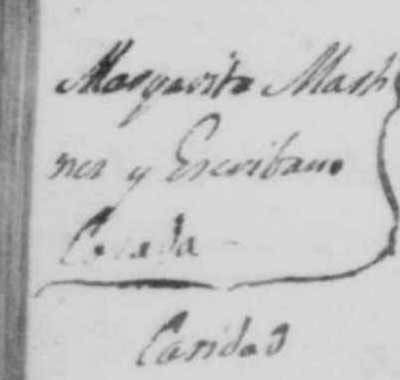 Margarita Marti
nes y Escribano
Casada
Caridad